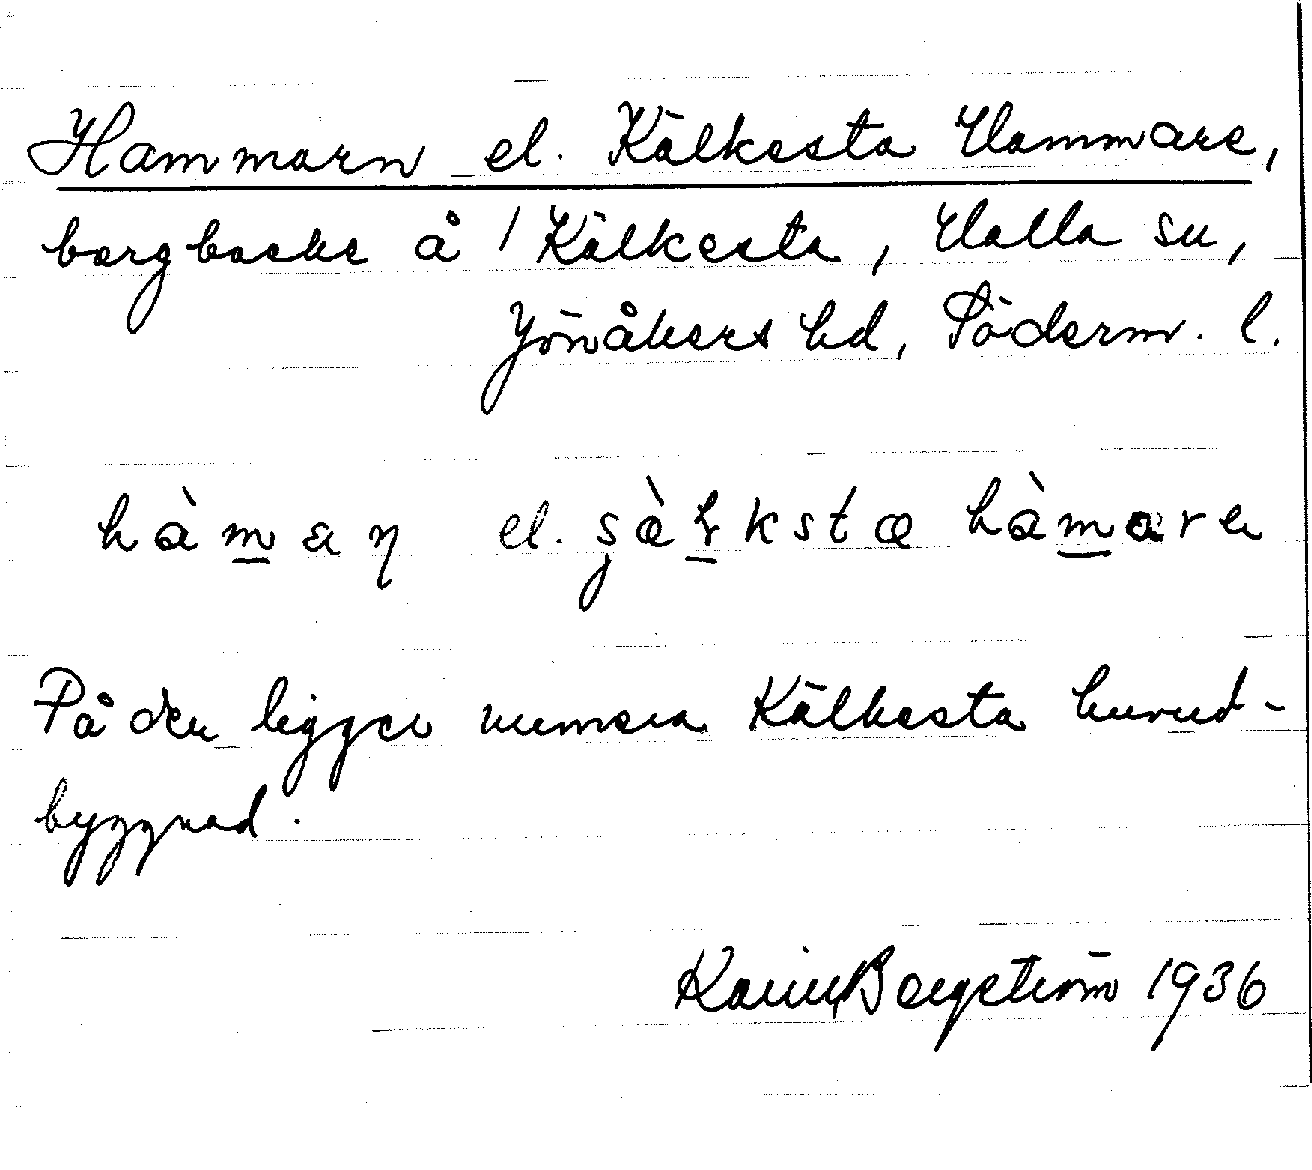 Hammarn el. Kälkesta Hammare,
bergbacke å 1 Kälkesta, Halla sn,
Jönåkers hd, Söderm. l.
el.
På den ligger numera Kälkesta huvud-
byggnad.
Karin Bergström 1936